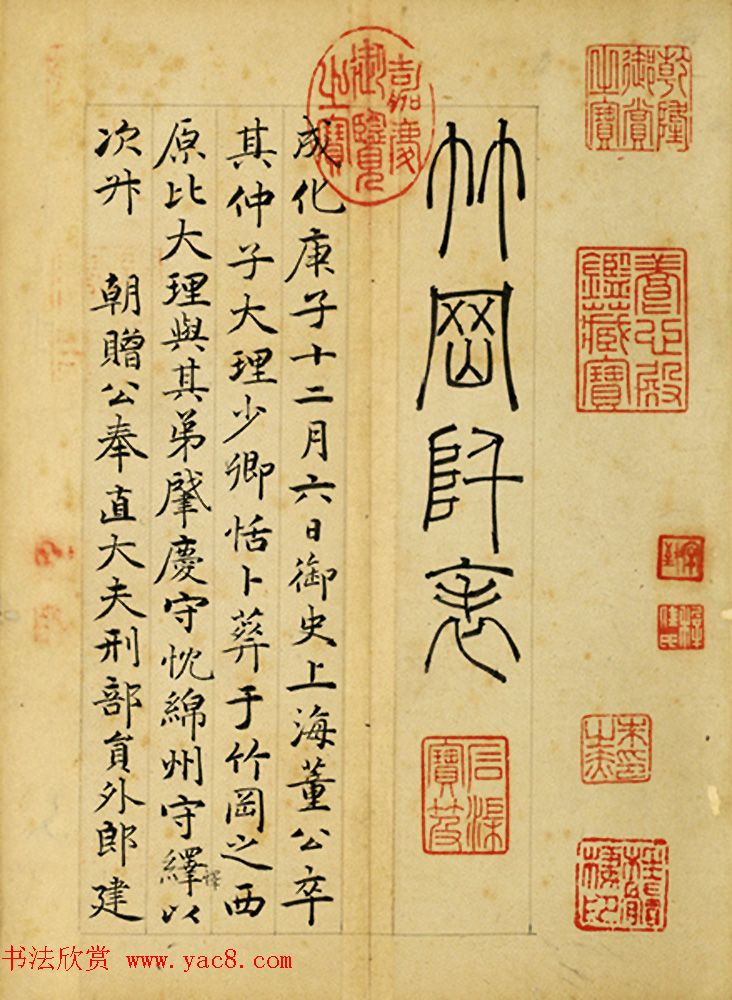 乾隆御賞之寶
養心殿鑑藏寶
竹岡阡表
石渠寶笈
嘉慶御覽之寶
成化庚子十二月六日御史上海董公卒
其仲子大理少卿恬卜葬于竹岡之西
原比大理與其弟肇慶守忱綿州守繹以
次升 朝贈公奉直大夫刑部員外郎建
书法欣赏 www.yac8.com